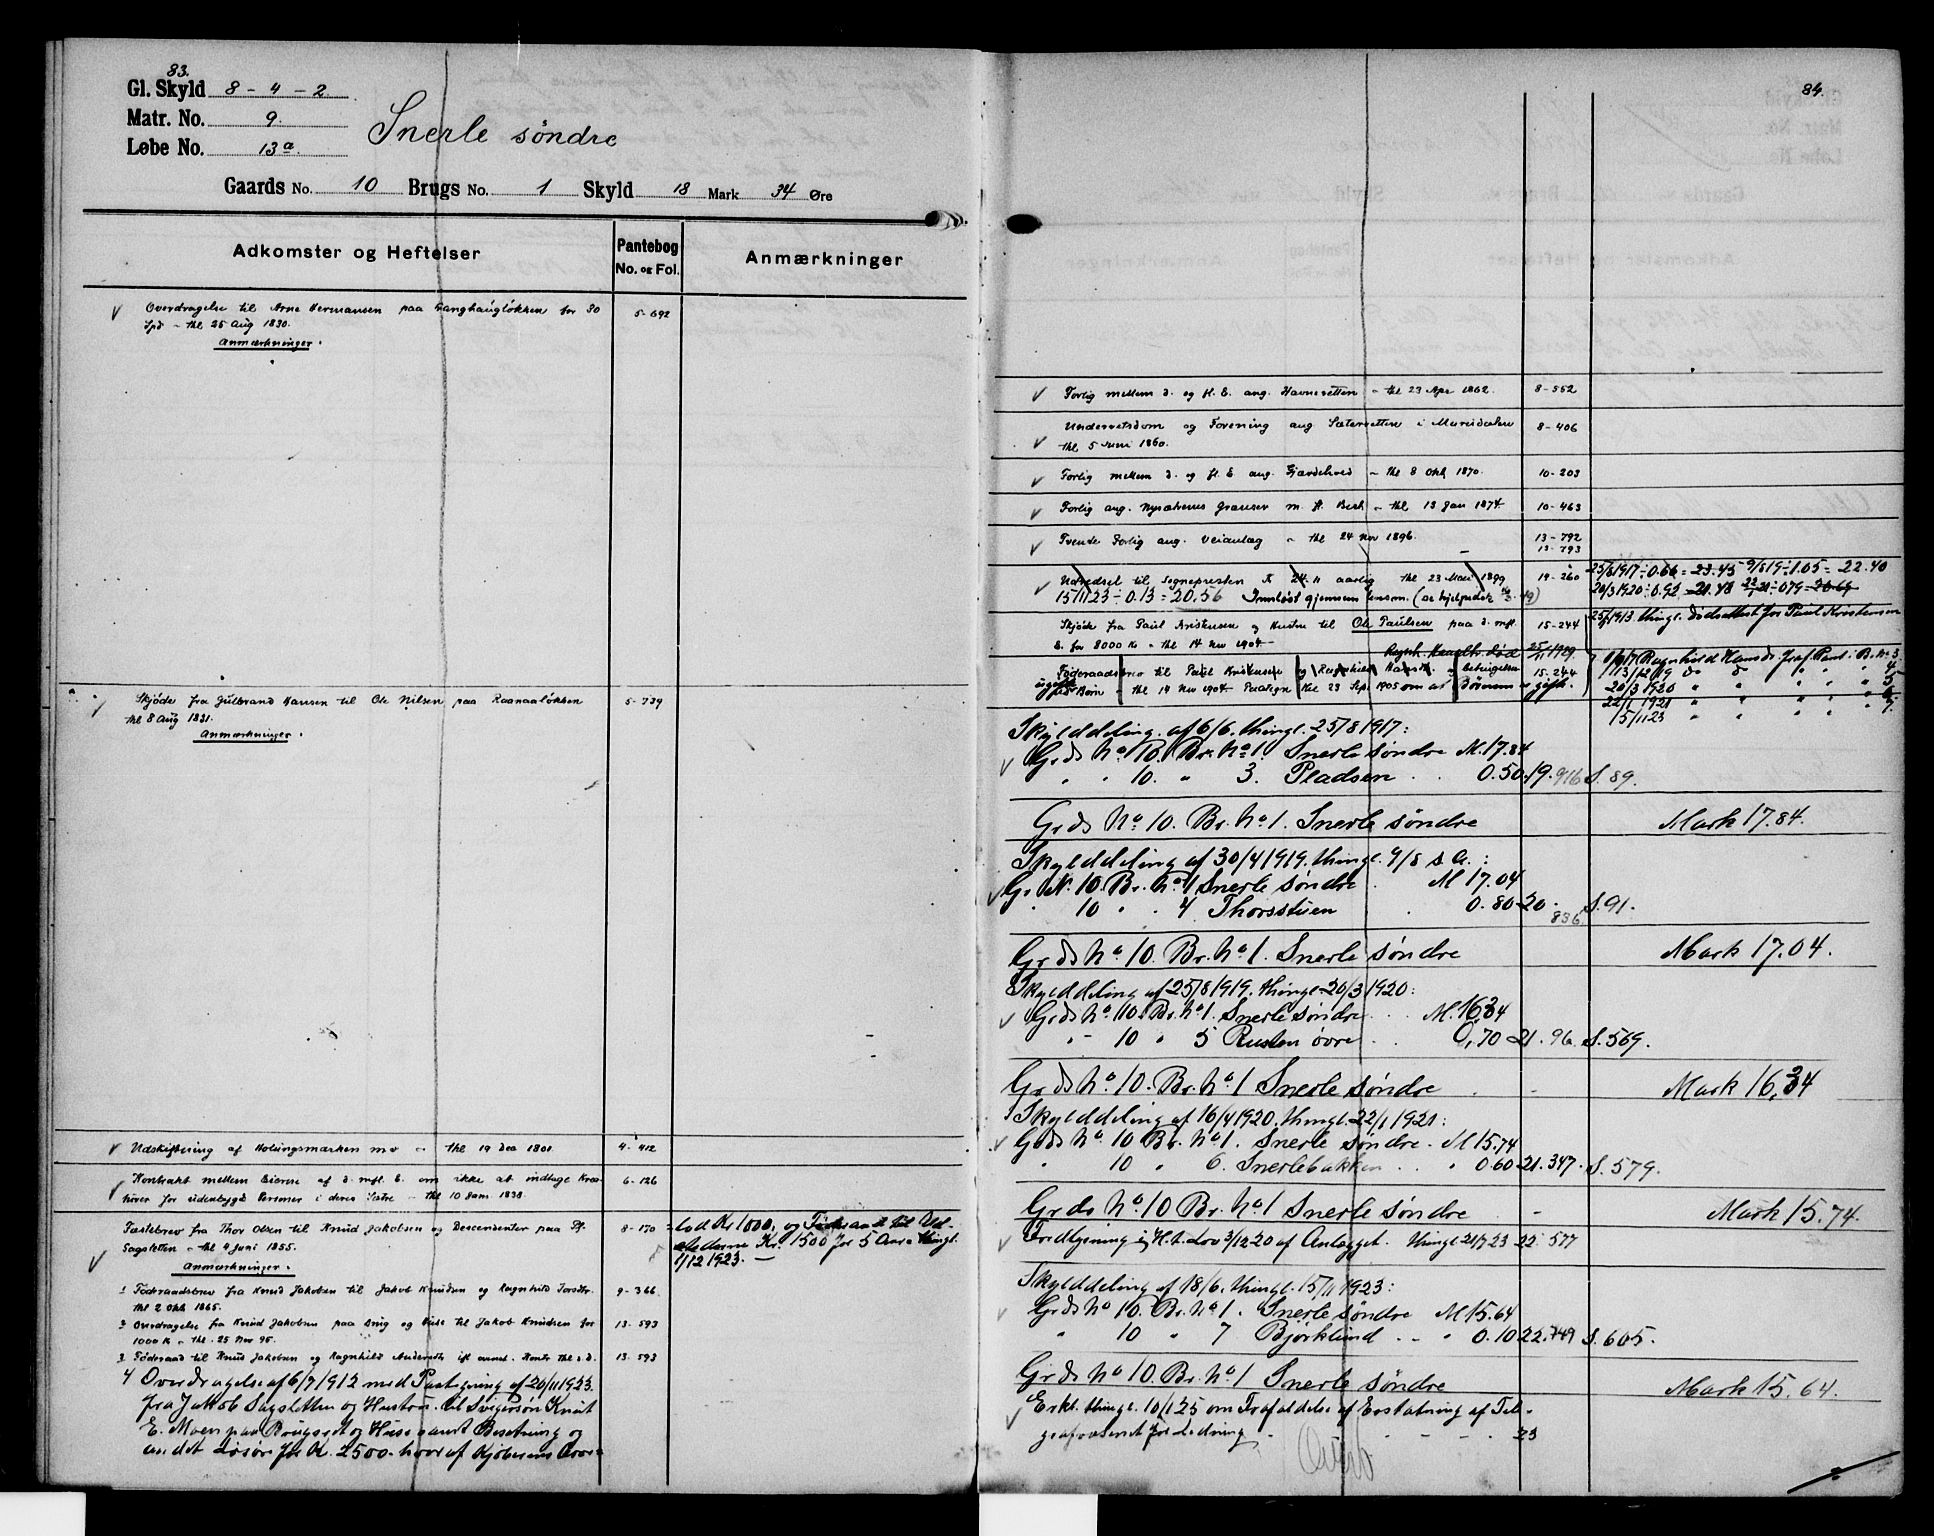 83.
Gl. Skyld 8 - 4 - 2
Matr. No. 9.
Løbe No. 13a
Snerle søndre
Gaards No. 10 Brugs No. 1 Skyld 18 Mark 34 Øre
Adkomster og Heftelser
Pantebog
No. og Fol.
Anmærkninger
Overdragelse til Arne Hermansen paa Ranghaugløkken for 30 5-692
Spd - thl 25 Aug 1830.
Anmærkninger.
Skjøde fra Gulbrand Hansen til Ole Nilsen paa Raanaaløkken 5-739
thl 8 Aug 1831.
Anmærkninger.
Udskiftning af Holungsmarken m v - thl 19 Dec 1801 4-412
Kontrakt mellem Eierne af d. mfl. E. om ikke at indtage Krea- 6-126
turer for udenbygds Personer i deres Sætre - thl 10 Jan. 1838.
Fæstebrev fra Thor Olsen til Knud Jakobsen og Descendenter paa Pl. 8-170
Sagsletten - thl 4 Juni 1855.
Anmærkninger.
Lod Kr 1000, og Føderaad til Ud-
stederne Kr. 1500 for 5 Aar. Thingl.
1/12 1923. —
1 Føderaadsbrev fra Knud Jakobsen til Jakob Knudsen og Ragnhild Torsdtr. 9-366
thl 2 Okt 1865.
2 Overdragelse fra Knud Jakobsen paa Brug og Huse til Jakob Knudsen for 13.593
1000 K - thl. 25 Nov 95.
3 Føderaad til Knud Jakobsen og Ragnhild Andersdtr ift ovennt. Kontr thl s.d. 13.593
4 Overdragelse af 6/7 1912 med Paategning af 20/11 1923.
fra Jakob Sagsletten og Hustru til Svigersøn Knut
E. Moen paa Brugsret og Huse samt Besetning og
andet Løsøre for Kr. 2500. hvoraf Kjøberens Over-
84.
Forlig mellem d. og fl. E. ang. Havneretten - thl 23 Apr 1862. 8-552
Underretsdom og Forening ang Sæterretten i Marisdalen 8-406
thl 5 Juni 1860.
Forlig mellem d. og fl. E. ang. Gjærdehved - thl 8 Okt 1870. 10-203
Forlig ang. Nysætrens Grænser m. fl. Best - thl 13 Jan 1874 10-463
Tvende Forlig ang. Veianlæg - thl 24 Nov 1896. 13-792
13-793
Udredsel til Sognepresten K 24.11 aarlig thl 23 Mai 1899 19-260 25/8 1917 ÷ 0.66 = 23.45 9/8 19 ÷ 1.05 = 22.40
15/11 23 ÷ 0.13 = 20.56 Innløst gjennem 20/3 1920 ÷ 0.92 = 21.48 22/1 21 ÷ 079 = 20.69
Skjøde fra Paul Kristensen og Hustru til Ole Paulsen paa d. mfl. 15-244 25/ 1913 thingl. Dødsattest for Paul Kristensen
E. for 8000 K - thl 14 Nov 1904 Ragnh. Hansdtr. død 25/11 1929
Føderaadsbrev til Paul Kristensen og Ragnhild Hansdtr. og betingelser 15.244 Ragnhild Hansdr. fraf. Pant i B. No 3
ugifte Børn - thl 14 Nov 1904 Paategn thl 23 Sep. 1905 om at Børnene er gift. 13/12 19 4
20/3 1920 " " " " " 5
22/1 1921 " " " " " 6
15/11 23 " " " " " 7
Skylddeling af 6/6. thingl. 25/8 1917:
Grds No 10. Br. No 1. Snerle søndre M. 17.84
" " 10. " 3. Pladsen . . 0.50. 19. 916 S. 89.
Grds No 10. Br. No 1. Snerle søndre Mark 17.84.
Skylddeling af 30/4 1919. thingl. 9/8 s a. :
Gr. N. 10. Br. No 1 Snerle søndre . M 17.04
" 10 " . 4 Thorsstuen . 0.80 20. 836 S. 91.
Grds No 10. Br. No 1. Snerle søndre Mark 17.04.
Skylddeling af 25/8 1919. thingl 20/3 1920:
Grds No 10. Br. No 1. Snerle søndre . . M. 16,34
" - 10 " 5 Rusten øvre . . 0,70 21. 96. S. 569.
Grds No 10. Br. No 1 Snerle søndre . - Mark 16,34
Skylddeling af 16/4 1920. thingl. 22/1 1921:
Grds No 10 Br. No 1. Snerle søndre. M 15.74
" 10 " 6. Snerlebakken . . " 0.60 21. 347. S. 579.
Grds No 10 Br. No 1 Snerle søndre - Mark 15.74.
Fredlysning i H.t. Lov 3/12 20 af Anlægget. thingl 21/7 23 22. 577
Skylddeling af 18/6. thingl. 15/11 1923:
Grds No 10. Br. No 1. Snerle søndre M 15.64
" 10 " 7 Bjørklund . - " 0.10 22. 749 S. 605.
Grds No 10. Br. No 1 Snerle søndre Mark 15.64.
Erkl. thingl. 10/1 25 om Frafaldelse af Erstatning af Tele-
grafvæsenet for Ledning - - - - - 23